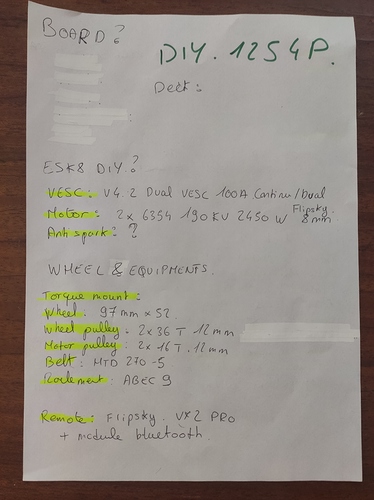 BOARD?
DIY. 12S4P.
Deck:
ESK8 DIY?
VESC: V4.2 Dual VESC 100A Continu/Dual
Motor: 2x 6354 190KV 2450 W Flipsky 8mm
Anti spark: ?
WHEEL & EQUIPMENTS.
Torque mount:
Wheel: 97mm x 52
Wheel pulley: 2x36T_12mm
Motor pulley: 2x 16T.12mm
Belt: MTD 270-5
Roulement: ABEC 9
Remote: Flipsky. VX2 PRO
+ module bluetooth.